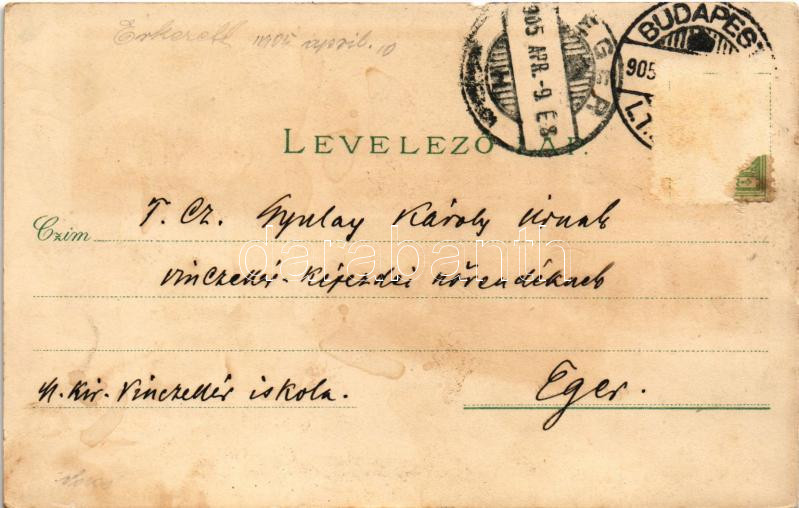 Érkezett 1905 april. 10
905 APR.-9. E8
EGER
BUDAPES
905
LEVELEZŐ LAP.
Czim T. Cz. Gyulay Károly Úrnak
vinczellér-képezdei növendéknek
M. Kir. Vinczellér iskola.
Eger.
darabanth